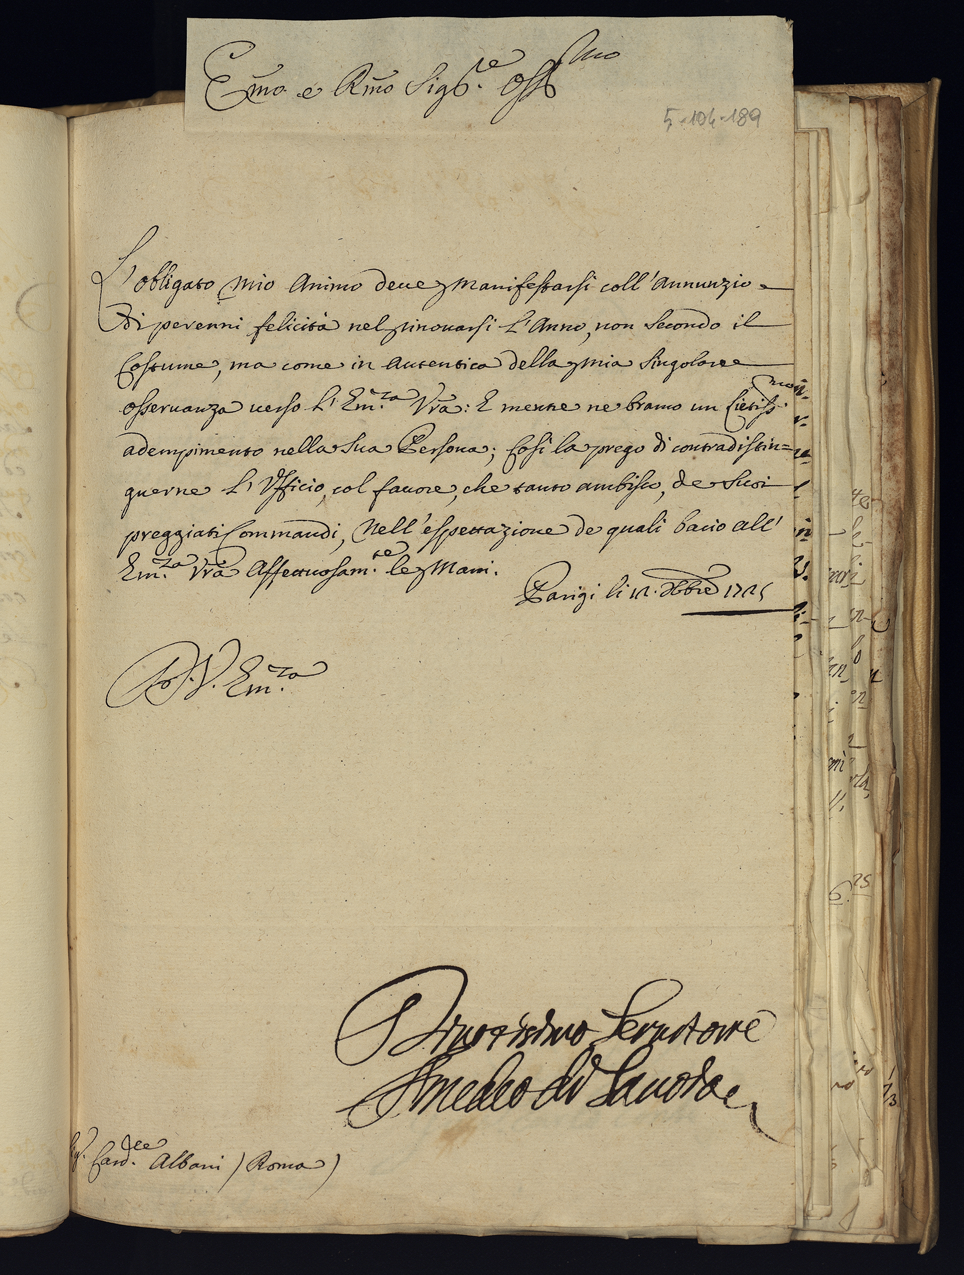 Emo e Rmo Sigre. Ossmo
5-104-189
L'obligato mio Animo deue manifestarsi coll'Annunzio
di perenni felicità nel rinouarsi L'Anno, non secondo il
Costume, ma come in Autentica della mia singolare
osseruanza uerso L'Em.za Vra: E mentre ne bramo un Lietissmo
adempimento nella sua Persona; Così la prego di contradistin=
guerne L'Vfficio, col fauore, che tanto ambisco, de suoi
preggiati Commandi, Nell'espettazione de quali bacio all'
Em.za Vra Affettuosam.te le Mani.
Parigi li 12. Xbre 1725
D. V. Em.za
Diuotissimo Seruitore
Amedeo di Sauoia
Sigr. Card.le Albani (Roma)